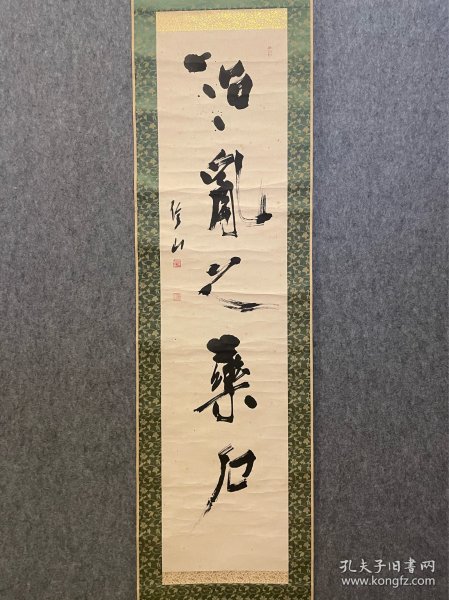 治亂之藥石
孔夫子旧書网
www.kongfz.com